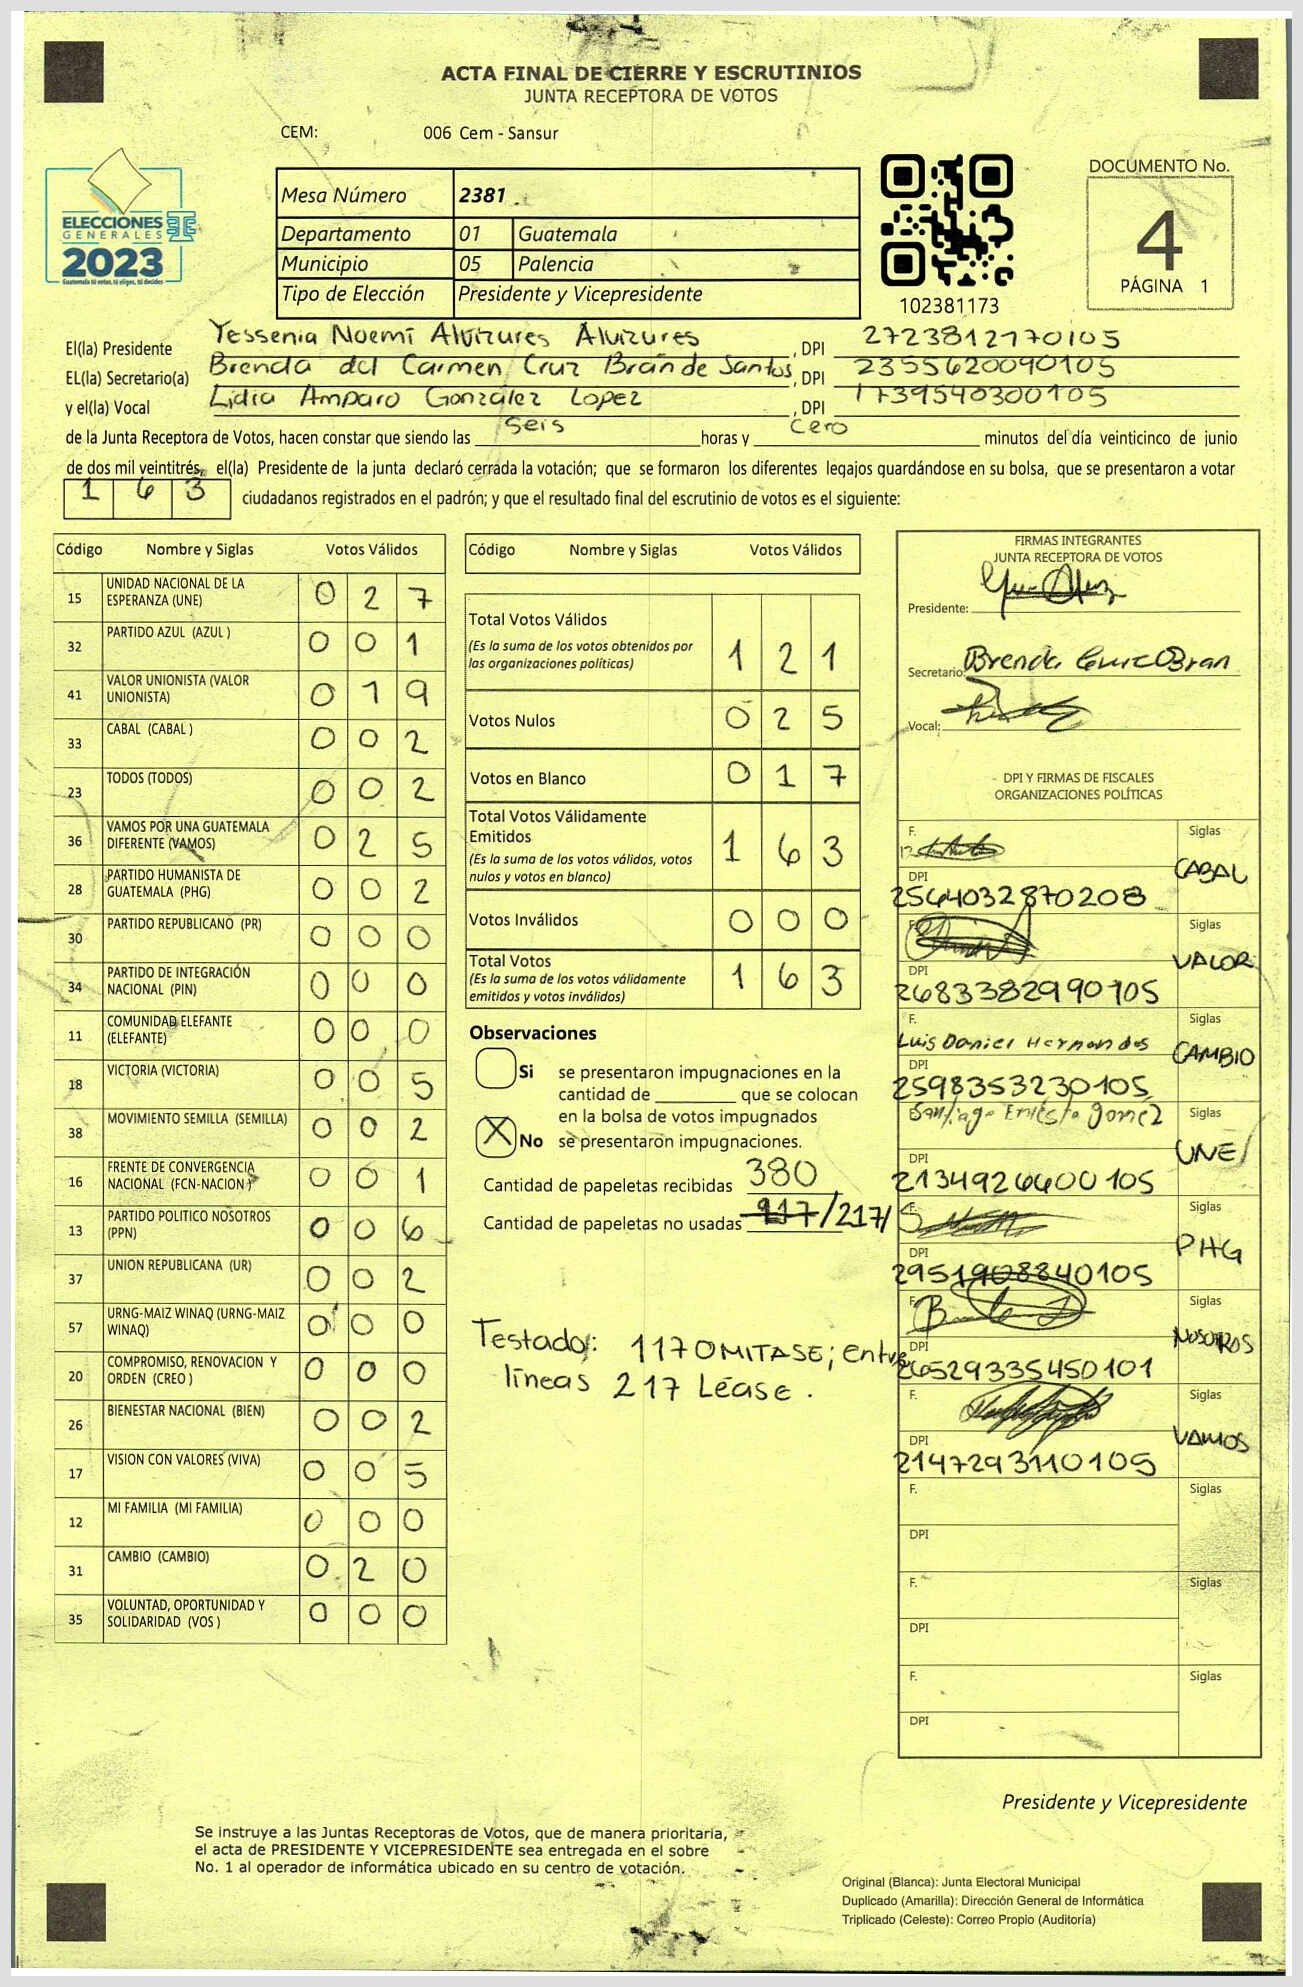 ACTA FINAL DE CIERRE Y ESCRUTINIOS
JUNTA RECEPTORA DE VOTOS
CEM: 006 Cem - Sansur
ELECCIONES
GENERALES
2023
Guatemala tú votas, tú eliges, tú decides
Mesa Número 2381
Departamento 01 Guatemala
Municipio 05 Palencia
Tipo de Elección Presidente y Vicepresidente
102381173
DOCUMENTO No.
4
PÁGINA 1
El(la) Presidente Yessenia Noemí Alvizures Alvizures, DPI 2723812770105
EL(la) Secretario(a) Brenda del Carmen Cruz Brán de Santos, DPI 2355620090105
y el(la) Vocal Lidia Amparo González Lopez, DPI 1739540300105
de la Junta Receptora de Votos, hacen constar que siendo las seis horas y cero minutos del día veinticinco de junio
de dos mil veintitrés, el(la) Presidente de la junta declaró cerrada la votación; que se formaron los diferentes legajos guardándose en su bolsa, que se presentaron a votar
1 6 3 ciudadanos registrados en el padrón; y que el resultado final del escrutinio de votos es el siguiente:
Código Nombre y Siglas Votos Válidos
15 UNIDAD NACIONAL DE LA ESPERANZA (UNE) 0 2 7
32 PARTIDO AZUL (AZUL ) 0 0 1
41 VALOR UNIONISTA (VALOR UNIONISTA) 0 1 9
33 CABAL (CABAL ) 0 0 2
23 TODOS (TODOS) 0 0 2
36 VAMOS POR UNA GUATEMALA DIFERENTE (VAMOS) 0 2 5
28 PARTIDO HUMANISTA DE GUATEMALA (PHG) 0 0 2
30 PARTIDO REPUBLICANO (PR) 0 0 0
34 PARTIDO DE INTEGRACIÓN NACIONAL (PIN) 0 0 0
11 COMUNIDAD ELEFANTE (ELEFANTE) 0 0 0
18 VICTORIA (VICTORIA) 0 0 5
38 MOVIMIENTO SEMILLA (SEMILLA) 0 0 2
16 FRENTE DE CONVERGENCIA NACIONAL (FCN-NACION ) 0 0 1
13 PARTIDO POLITICO NOSOTROS (PPN) 0 0 6
37 UNION REPUBLICANA (UR) 0 0 2
57 URNG-MAIZ WINAQ (URNG-MAIZ WINAQ) 0 0 0
20 COMPROMISO, RENOVACION Y ORDEN (CREO ) 0 0 0
26 BIENESTAR NACIONAL (BIEN) 0 0 2
17 VISION CON VALORES (VIVA) 0 0 5
12 MI FAMILIA (MI FAMILIA) 0 0 0
31 CAMBIO (CAMBIO) 0 2 0
35 VOLUNTAD, OPORTUNIDAD Y SOLIDARIDAD (VOS ) 0 0 0
Código Nombre y Siglas Votos Válidos
Total Votos Válidos
(Es la suma de los votos obtenidos por
las organizaciones políticas) 1 2 1
Votos Nulos 0 2 5
Votos en Blanco 0 1 7
Total Votos Válidamente
Emitidos
(Es la suma de los votos válidos, votos
nulos y votos en blanco) 1 6 3
Votos Inválidos 0 0 0
Total Votos
(Es la suma de los votos válidamente
emitidos y votos inválidos) 1 6 3
Observaciones
Si se presentaron impugnaciones en la
cantidad de ________ que se colocan
en la bolsa de votos impugnados
X No se presentaron impugnaciones.
Cantidad de papeletas recibidas 380
Cantidad de papeletas no usadas 117/217/
Testado: 117 OMITASE; entre
líneas 217 Léase.
FIRMAS INTEGRANTES
JUNTA RECEPTORA DE VOTOS
Presidente:
Secretario: Brenda Cruz Bran
Vocal:
DPI Y FIRMAS DE FISCALES
ORGANIZACIONES POLÍTICAS
F. Siglas
DPI CABAL
2564032870208
F. Siglas
DPI VALOR
2683382990105
F. Siglas
Luis Daniel Hernandes
DPI CAMBIO
2598353230105
Siglas
Santiago Ernesto Gomez
DPI UNE
2134926600105
F. Siglas
DPI PHG
2951908840105
F. Siglas
DPI NOSOTROS
26529335450101
F. Siglas
DPI VAMOS
2147293110105
F. Siglas
DPI
F. Siglas
DPI
F. Siglas
DPI
Presidente y Vicepresidente
Se instruye a las Juntas Receptoras de Votos, que de manera prioritaria,
el acta de PRESIDENTE Y VICEPRESIDENTE sea entregada en el sobre
No. 1 al operador de informática ubicado en su centro de votación.
Original (Blanca): Junta Electoral Municipal
Duplicado (Amarilla): Dirección General de Informática
Triplicado (Celeste): Correo Propio (Auditoría)